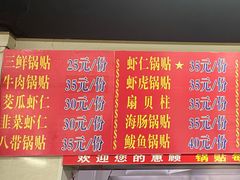 三鲜锅贴 25元/份
牛肉锅贴 35元/份
茭瓜虾仁 30元/份
韭菜虾仁 30元/份
八带锅贴 35元/份
虾仁锅贴★ 35元/份
虾虎锅贴 35元/份
扇贝柱 35元/份
海肠锅贴 35元/份
鲅鱼锅贴 40元/份
欢迎您的惠顾 锅贴